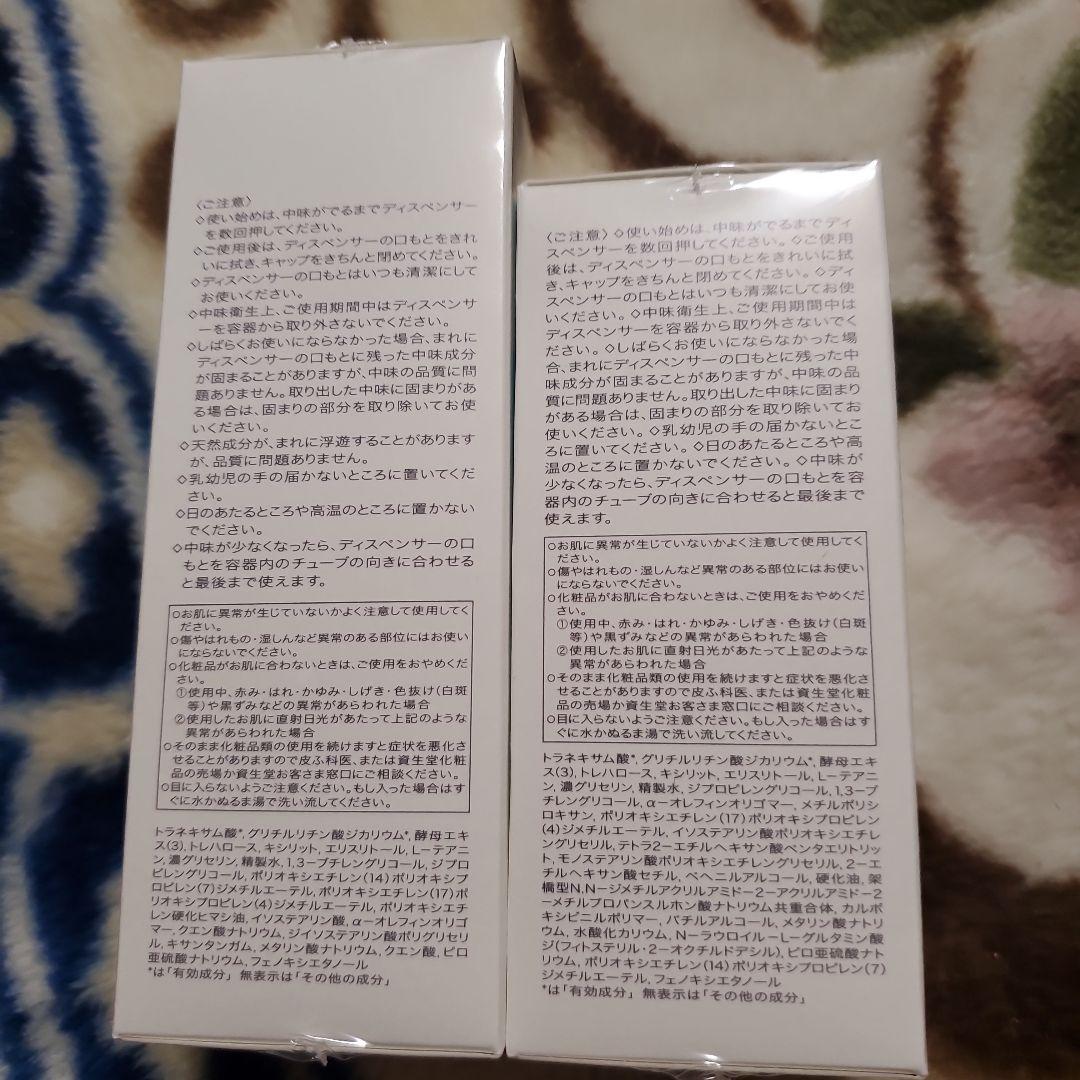 〈ご注意〉
◇使い始めは、中味がでるまでディスペンサー
を数回押してください。
◇ご使用後は、ディスペンサーの口もとをきれ
いに拭き、キャップをきちんと閉めてください。
◇ディスペンサーの口もとはいつも清潔にして
お使いください。
◇中味衛生上、ご使用期間中はディスペンサ
ーを容器から取り外さないでください。
◇しばらくお使いにならなかった場合、まれに
ディスペンサーの口もとに残った中味成分
が固まることがありますが、中味の品質に問
題ありません。取り出した中味に固まりがあ
る場合は、固まりの部分を取り除いてお使
いください。
◇天然成分が、まれに浮遊することがあります
が、品質に問題ありません。
◇乳幼児の手の届かないところに置いてくだ
さい。
◇日のあたるところや高温のところに置かない
でください。
◇中味が少なくなったら、ディスペンサーの口
もとを容器内のチューブの向きに合わせる
と最後まで使えます。
○お肌に異常が生じていないかよく注意して使用してく
ださい。
○傷やはれもの・湿しんなど異常のある部位にはお使い
にならないでください。
○化粧品がお肌に合わないときは、ご使用をおやめくだ
さい。
①使用中、赤み・はれ・かゆみ・しげき・色抜け(白斑
等)や黒ずみなどの異常があらわれた場合
②使用したお肌に直射日光があたって上記のような
異常があらわれた場合
○そのまま化粧品類の使用を続けますと症状を悪化さ
せることがありますので皮ふ科医、または資生堂化粧
品の売場か資生堂お客さま窓口にご相談ください。
○目に入らないようご注意ください。もし入った場合はす
ぐに水かぬるま湯で洗い流してください。
トラネキサム酸*、グリチルリチン酸ジカリウム*、酵母エキ
ス(3)、トレハロース、キシリット、エリスリトール、L-テアニ
ン、濃グリセリン、精製水、1,3-ブチレングリコール、ジプロ
ピレングリコール、ポリオキシエチレン(14)ポリオキシプ
ロピレン(7)ジメチルエーテル、ポリオキシエチレン(17)ポ
リオキシプロピレン(4)ジメチルエーテル、ポリオキシエチ
レン硬化ヒマシ油、イソステアリン酸、α-オレフィンオリゴ
マー、クエン酸ナトリウム、ジイソステアリン酸ポリグリセリ
ル、キサンタンガム、メタリン酸ナトリウム、クエン酸、ピロ
亜硫酸ナトリウム、フェノキシエタノール
*は「有効成分」 無表示は「その他の成分」
〈ご注意〉◇使い始めは、中味がでるまでディ
スペンサーを数回押してください。◇ご使用
後は、ディスペンサーの口もとをきれいに拭
き、キャップをきちんと閉めてください。◇ディ
スペンサーの口もとはいつも清潔にしてお使
いください。◇中味衛生上、ご使用期間中は
ディスペンサーを容器から取り外さないでく
ださい。◇しばらくお使いにならなかった場
合、まれにディスペンサーの口もとに残った中
味成分が固まることがありますが、中味の品
質に問題ありません。取り出した中味に固まり
がある場合は、固まりの部分を取り除いてお
使いください。◇乳幼児の手の届かないとこ
ろに置いてください。◇日のあたるところや高
温のところに置かないでください。◇中味が
少なくなったら、ディスペンサーの口もとを容
器内のチューブの向きに合わせると最後まで
使えます。
○お肌に異常が生じていないかよく注意して使用してく
ださい。
○傷やはれもの・湿しんなど異常のある部位にはお使い
にならないでください。
○化粧品がお肌に合わないときは、ご使用をおやめくだ
さい。
①使用中、赤み・はれ・かゆみ・しげき・色抜け(白斑
等)や黒ずみなどの異常があらわれた場合
②使用したお肌に直射日光があたって上記のような
異常があらわれた場合
○そのまま化粧品類の使用を続けますと症状を悪化さ
せることがありますので皮ふ科医、または資生堂化粧
品の売場か資生堂お客さま窓口にご相談ください。
○目に入らないようご注意ください。もし入った場合はす
ぐに水かぬるま湯で洗い流してください。
トラネキサム酸*、グリチルリチン酸ジカリウム*、酵母エキ
ス(3)、トレハロース、キシリット、エリスリトール、L-テアニ
ン、濃グリセリン、精製水、ジプロピレングリコール、1,3-ブ
チレングリコール、α-オレフィンオリゴマー、メチルポリシ
ロキサン、ポリオキシエチレン(17)ポリオキシプロピレン
(4)ジメチルエーテル、イソステアリン酸ポリオキシエチレ
ングリセリル、テトラ2-エチルヘキサン酸ペンタエリトリッ
ト、モノステアリン酸ポリオキシエチレングリセリル、2-エ
チルヘキサン酸セチル、ベヘニルアルコール、硬化油、架
橋型N,N-ジメチルアクリルアミド-2-アクリルアミド-2
-メチルプロパンスルホン酸ナトリウム共重合体、カルボ
キシビニルポリマー、バチルアルコール、メタリン酸ナトリ
ウム、水酸化カリウム、N-ラウロイル-L-グルタミン酸
ジ(フィトステリル・2-オクチルドデシル)、ピロ亜硫酸ナト
リウム、ポリオキシエチレン(14)ポリオキシプロピレン(7)
ジメチルエーテル、フェノキシエタノール
*は「有効成分」 無表示は「その他の成分」